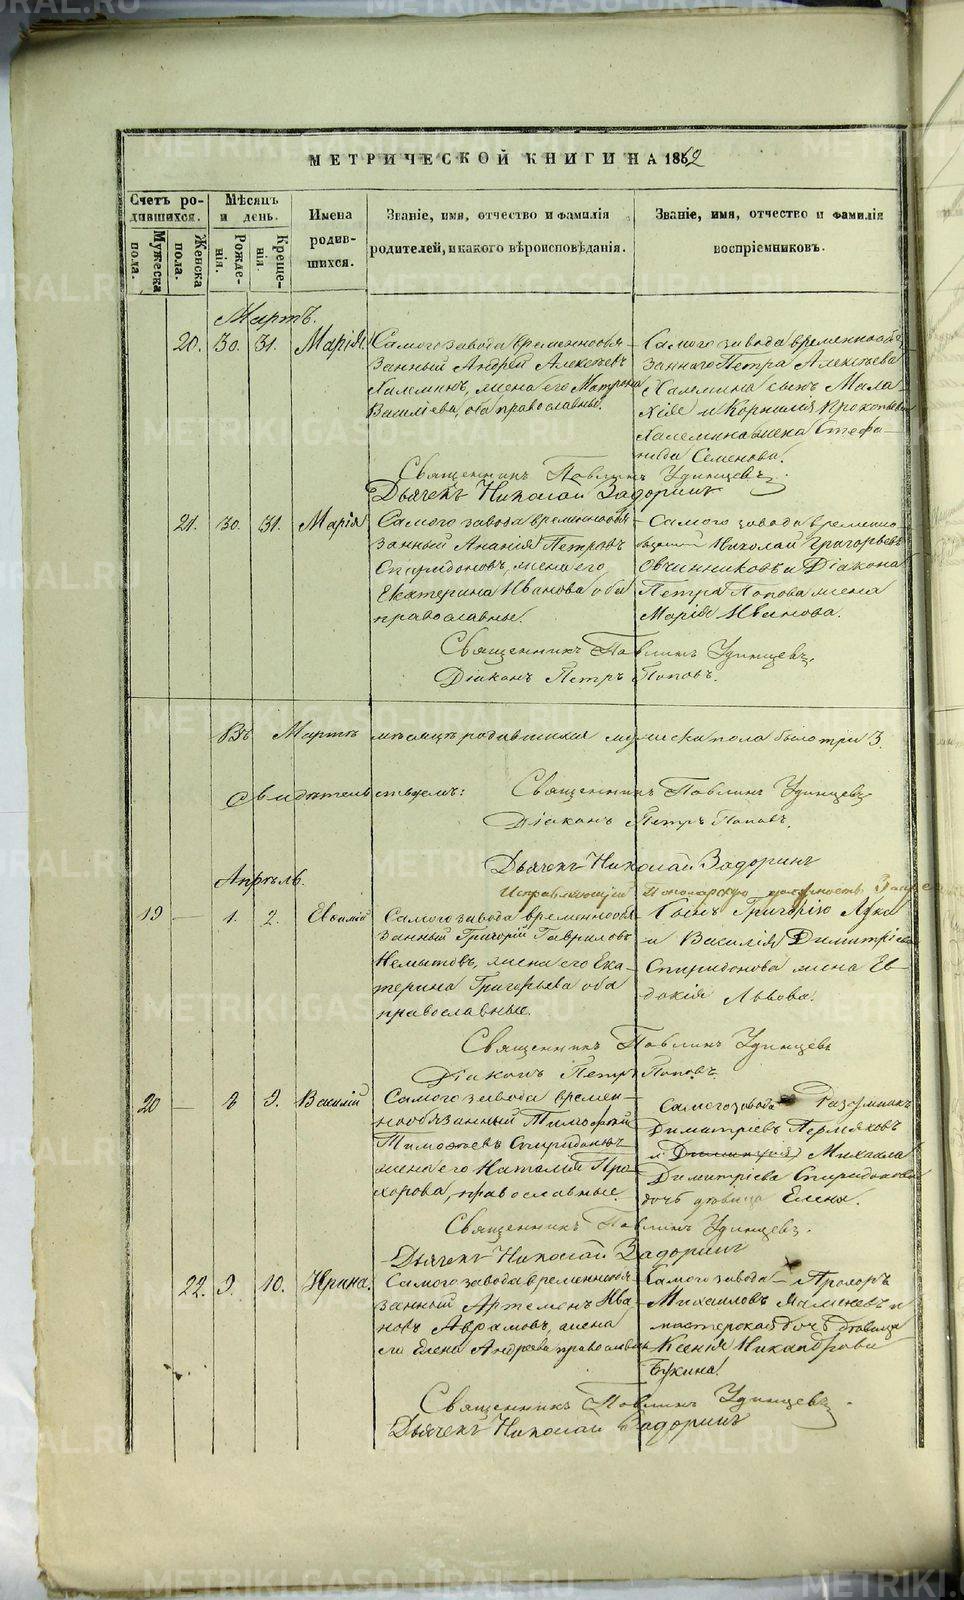 МЕТРИЧЕСКОЙ КНИГИ НА 1862
Счетъ родившихся.
Мужеска пола.
Женска пола.
Мѣсяцъ и день.
Рожденія.
Крещенія.
Имена родившихся.
Званіе, имя, отчество и фамилія родителей, и какого вѣроисповѣданія.
Званіе, имя, отчество и фамилія воспріемниковъ.
Мартъ.
20. 30. 31. Марія.
Самого завода временнообя-
занный Андрей Алексѣевъ
Халеминъ, жена его Матрена
Васильева, оба православные.
Самого завода временнообя-
заннаго Петра Алексѣева
Халемина сынъ Мала
хій и Корнилія Прокопьева
Халемина жена Стефа-
нида Семенова.
Священникъ Павлинъ Удинцевъ.
Дьячекъ Николай Задоринъ
21. 30. 31. Марія
Самого завода временнообя-
занный Ананія Петровъ
Спиридоновъ, жена его
Екатерина Иванова оба
православные.
Самого завода временно-
Николай Григорьевъ
Овчинниковъ и Діакона
Петра Попова жена
Марія Иванова.
Священникъ Павлинъ Удинцевъ.
Діаконъ Петръ Поповъ.
Въ Мартѣ мѣсяцѣ родившихся мужеска пола было три 3.
Свидѣтельствуемъ: Священникъ Павлинъ Удинцевъ
Діаконъ Петръ Поповъ.
Дьячекъ Николай Задоринъ
Исправляющій Пономарскую должность
Апрѣль.
19 — 1. 2. Евѳимій
Самого завода временнообя-
занный Григорій Гавриловъ
Немытовъ, жена его Ека-
терина Григорьева оба
православные.
Сынъ Григорію Лука
и Василія Димитріева
Спиридонова жена Ев-
докія Львова.
Священникъ Павлинъ Удинцевъ
Діаконъ Петръ Поповъ.
20 — 8 9. Василій
Самого завода времен-
нообязанный Тимоѳей
Тимоѳеевъ Спиридоновъ
жена его Наталія Про
хорова, православные.
Самого завода
Димитріевъ Пермяковъ
и Михаила
Димитріева Спиридонова
дочь дѣвица Елена.
Священникъ Павлинъ Удинцевъ.
Дьячекъ Николай Задоринъ
22. 9. 10. Ирина.
Самого завода временнообя-
занный Артеменъ Ива
новъ Аврамовъ, жена
его Елена Андреева православн
Самого завода — Прохоръ
Михаиловъ и
мастерская дочь дѣвица
Ксенія Никандрова
Букина.
Священникъ Павлинъ Удинцевъ.
Дьячекъ Николай Задоринъ
METRIKI.GASO-URAL.RU